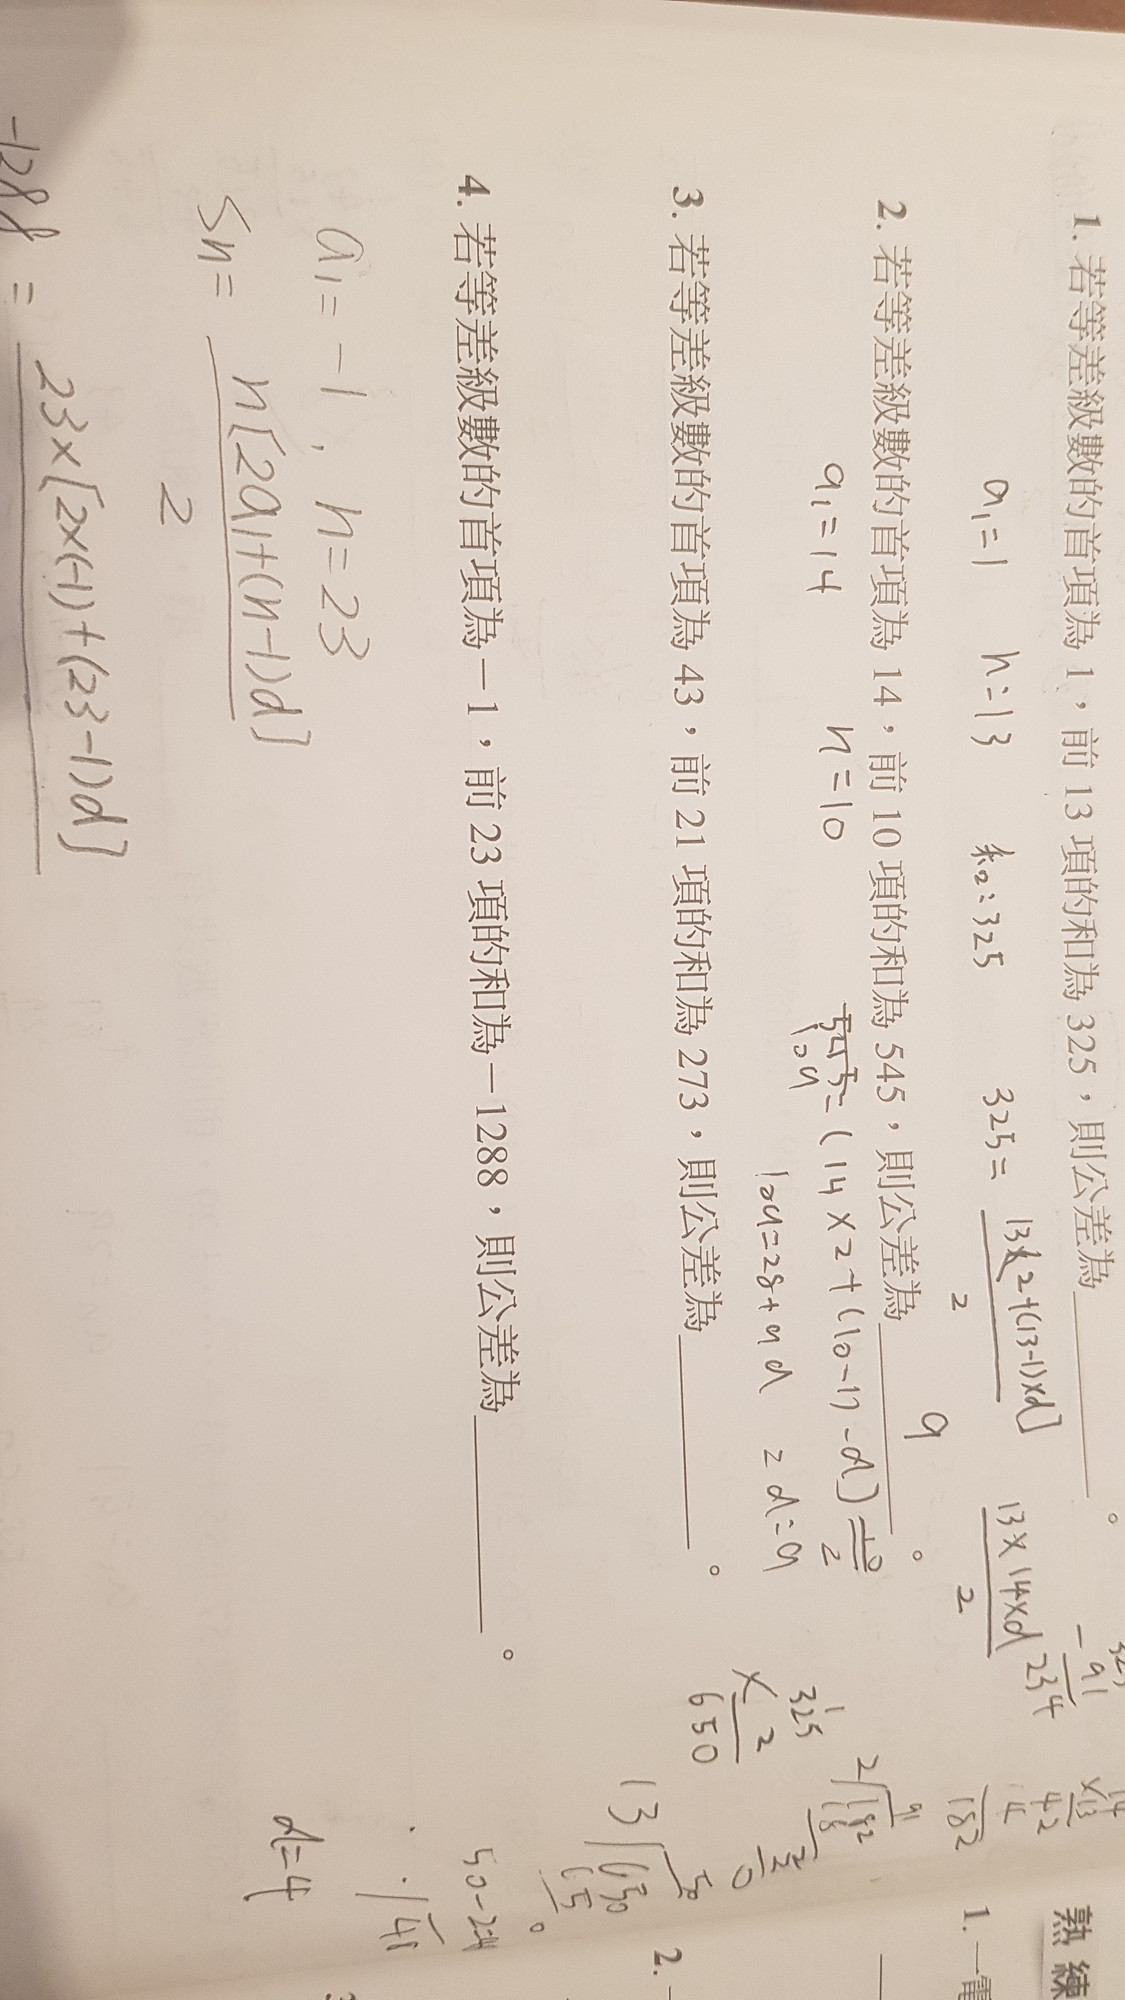 1. 若等差級數的首項為 1，前 13 項的和為 325，則公差為＿＿＿＿。
a₁=1 n=13 和=325 325=
13[2+(13-1)×d]
2
13×14×d
2
-91
234
14
×13
42
14
182
2. 若等差級數的首項為 14，前 10 項的和為 545，則公差為＿＿＿＿。
9
a₁=14 n=10
545=(14×2+(10-1)-d]10/2
109
109=28+9d =d=9
3. 若等差級數的首項為 43，前 21 項的和為 273，則公差為＿＿＿＿。
325
×2
650
4. 若等差級數的首項為－1，前 23 項的和為－1288，則公差為＿＿＿＿。
a₁=-1, n=23
Sn= n[2a₁+(n-1)d]
2
-1288 = 23×[2×(-1)+(23-1)d]
13
650
65
0
50-2=48
d=4
熟練
1. 一電
2.